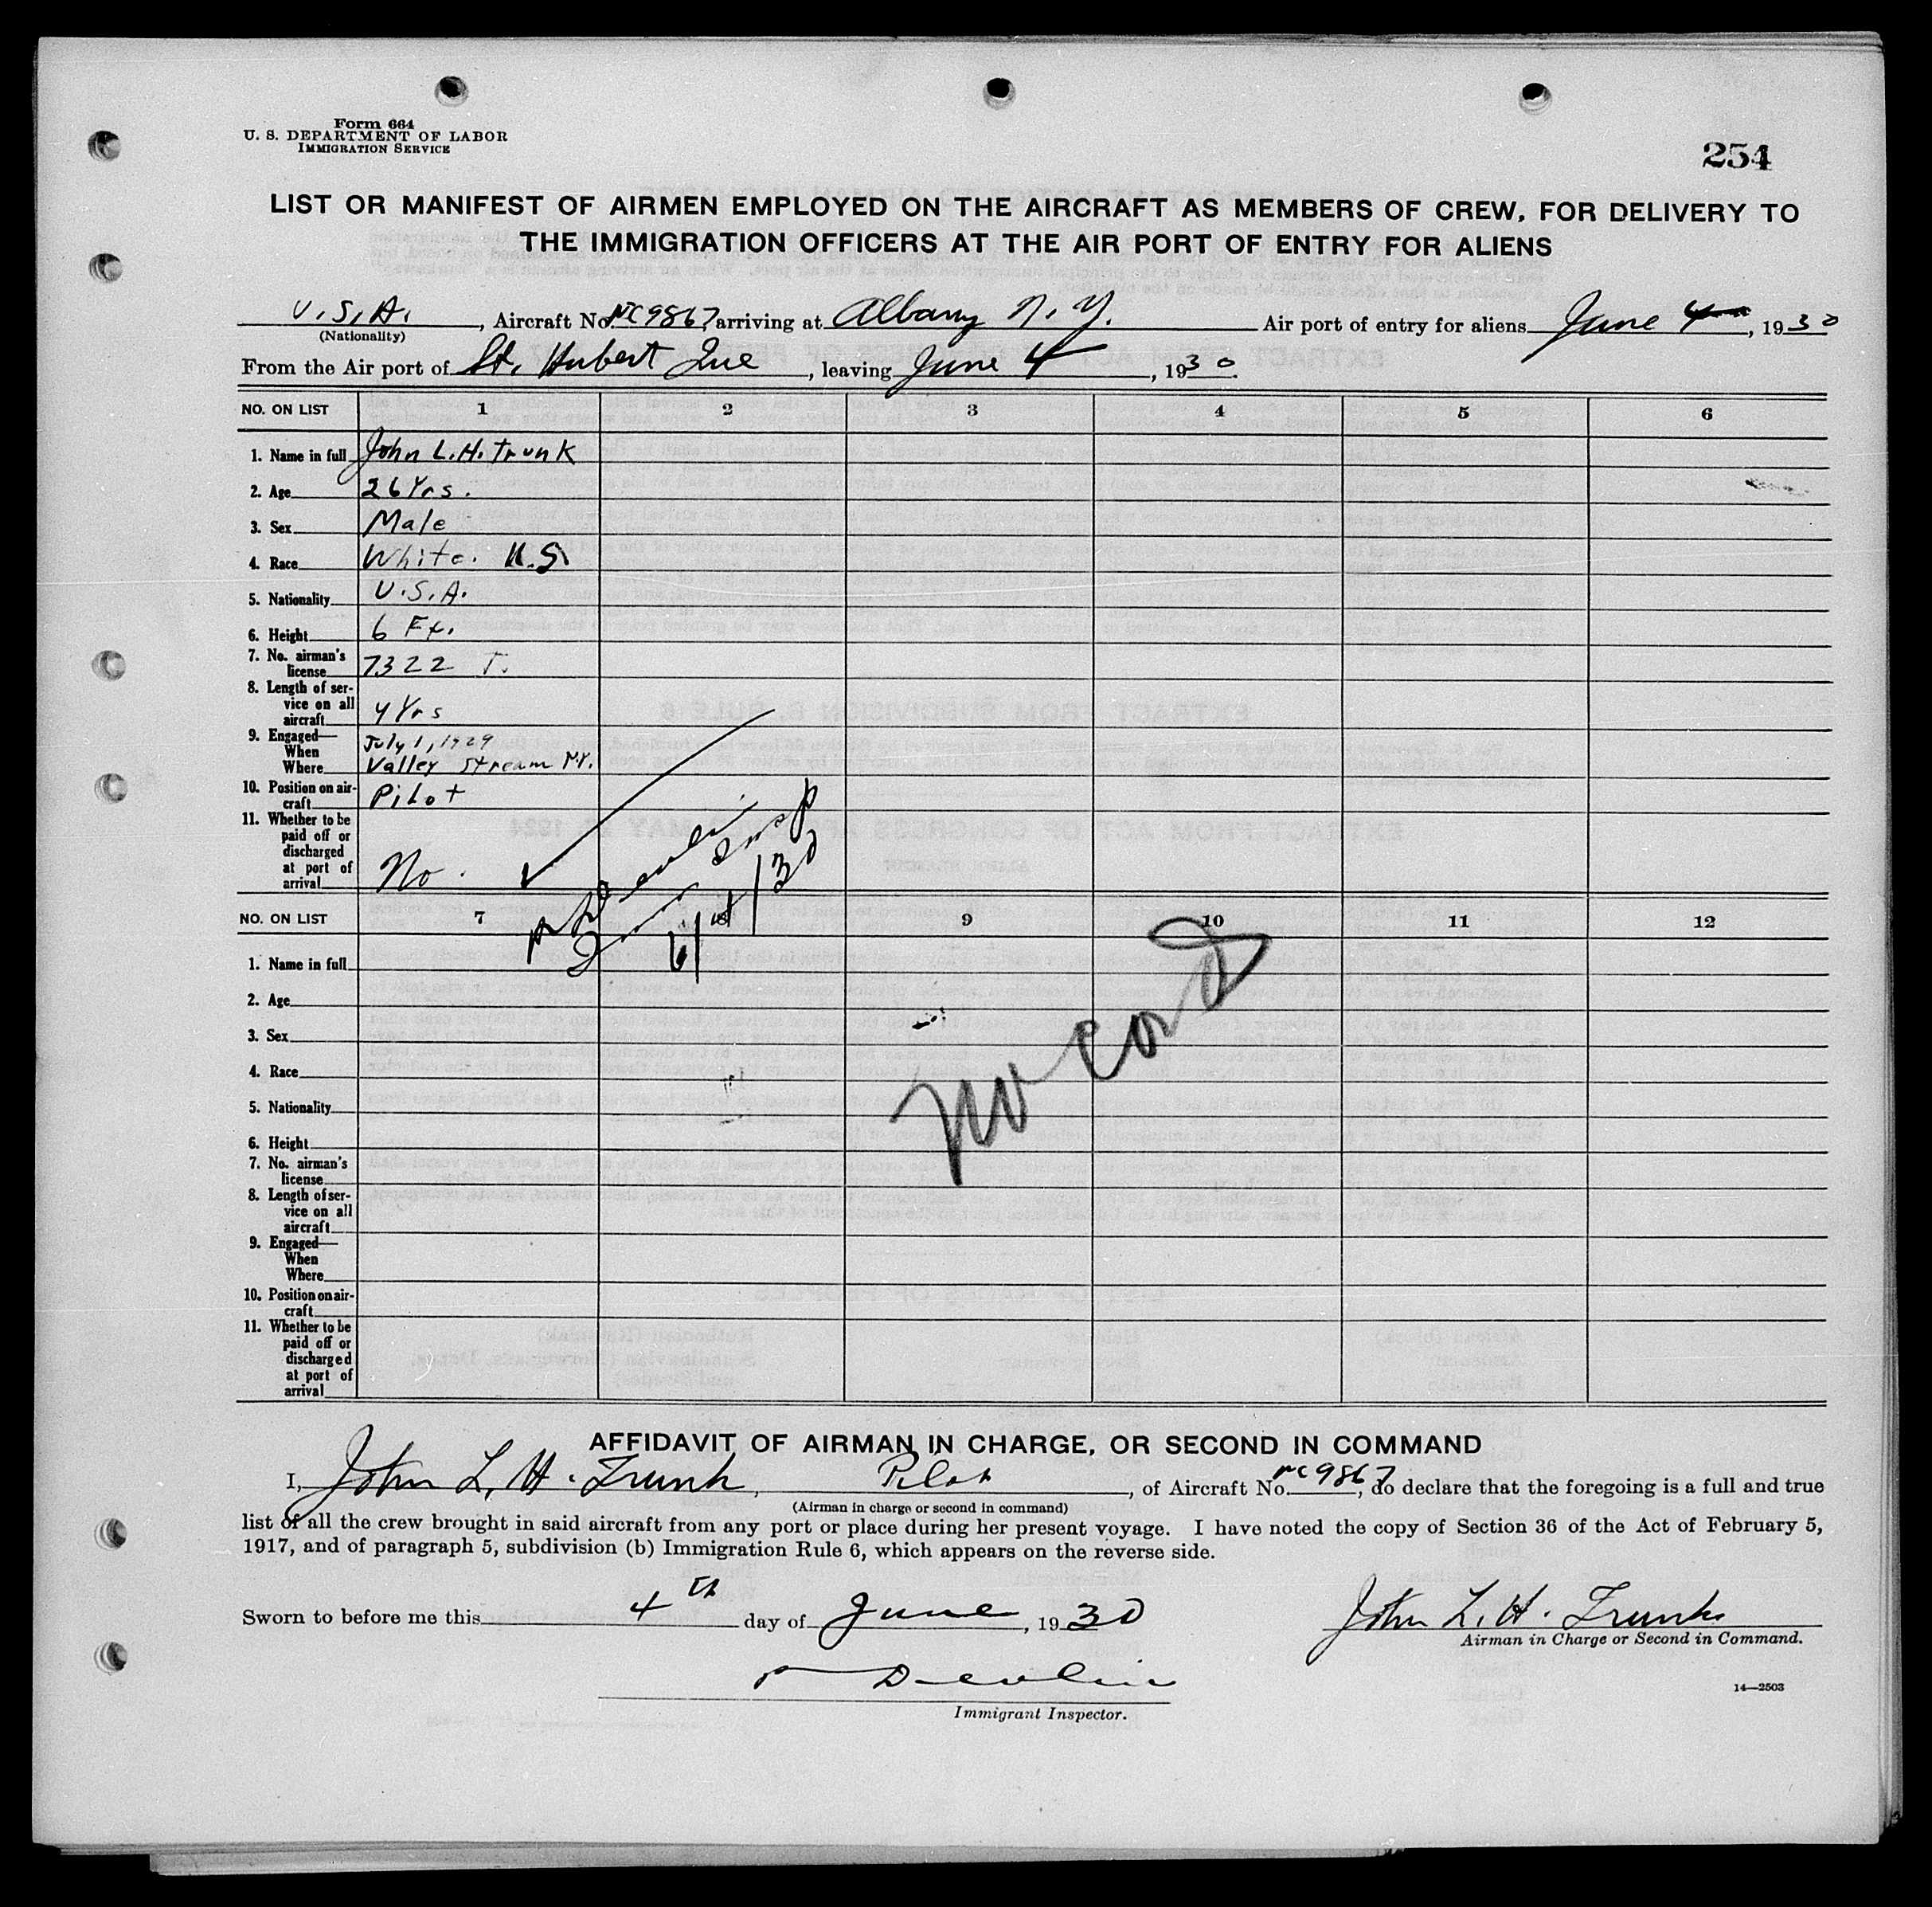 Form 664
U. S. DEPARTMENT OF LABOR
IMMIGRATION SERVICE
254
LIST OR MANIFEST OF AIRMEN EMPLOYED ON THE AIRCRAFT AS MEMBERS OF CREW, FOR DELIVERY TO
THE IMMIGRATION OFFICERS AT THE AIR PORT OF ENTRY FOR ALIENS
U.S.A., Aircraft No. NC9867, arriving at Albany N.Y. Air port of entry for aliens June 4, 1930
(Nationality)
From the Air port of St. Hubert Que, leaving June 4, 1930.
NO. ON LIST 1 2 3 4 5 6
1. Name in full John L.H. Trunk
2. Age 26 Yrs.
3. Sex Male
4. Race White. U.S.
5. Nationality U.S.A.
6. Height 6 Ft.
7. No. airman's
license 7322 T.
8. Length of ser-
vice on all
aircraft 4 Yrs
9. Engaged—
When July 1, 1929
Where Valley Stream N.Y.
10. Position on air-
craft Pilot
11. Whether to be
paid off or
discharged
at port of
arrival No.
Devlin
Imm Insp
6/4/30
NO. ON LIST 7 8 9 10 11 12
1. Name in full
2. Age
3. Sex
4. Race
5. Nationality
6. Height
7. No. airman's
license
8. Length of ser-
vice on all
aircraft
9. Engaged—
When
Where
10. Position on air-
craft
11. Whether to be
paid off or
discharged
at port of
arrival
No card
AFFIDAVIT OF AIRMAN IN CHARGE, OR SECOND IN COMMAND
I, John L. H. Trunk, Pilot, of Aircraft No. NC9867, do declare that the foregoing is a full and true
(Airman in charge or second in command)
list of all the crew brought in said aircraft from any port or place during her present voyage. I have noted the copy of Section 36 of the Act of February 5,
1917, and of paragraph 5, subdivision (b) Immigration Rule 6, which appears on the reverse side.
Sworn to before me this 4th day of June, 1930
John L. H. Trunk
Airman in Charge or Second in Command.
Devlin
Immigrant Inspector.
14—2503